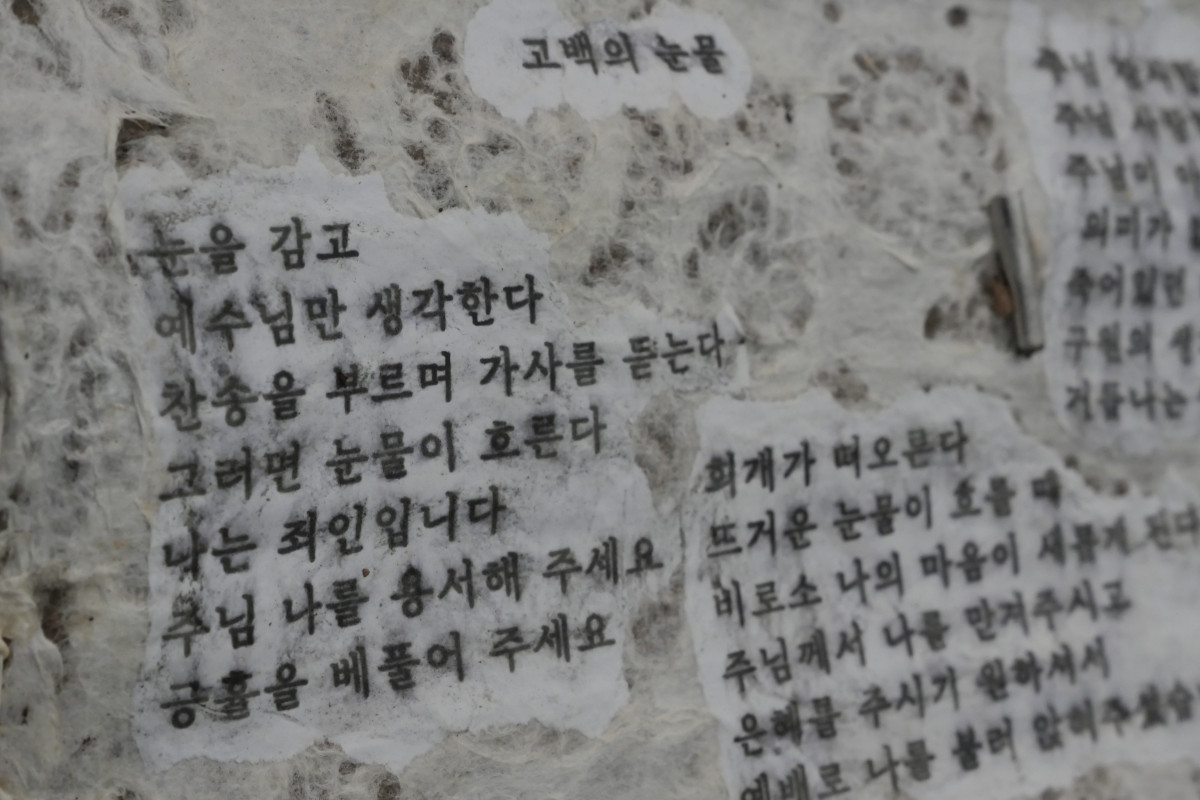 고백의 눈물
눈을 감고
예수님만 생각한다
찬송을 부르며 가사를 듣는다
그러면 눈물이 흐른다
나는 죄인입니다
주님 나를 용서해 주세요
긍휼을 베풀어 주세요
회개가 떠오른다
뜨거운 눈물이 흐를 때
비로소 나의 마음이 새롭게 된다
주님께서 나를 만져주시고
은혜를 주시기 원하셔서
예배로 나를 불러
주님
주님
주님이
의미가
죽어있던
구원의
거듭나는